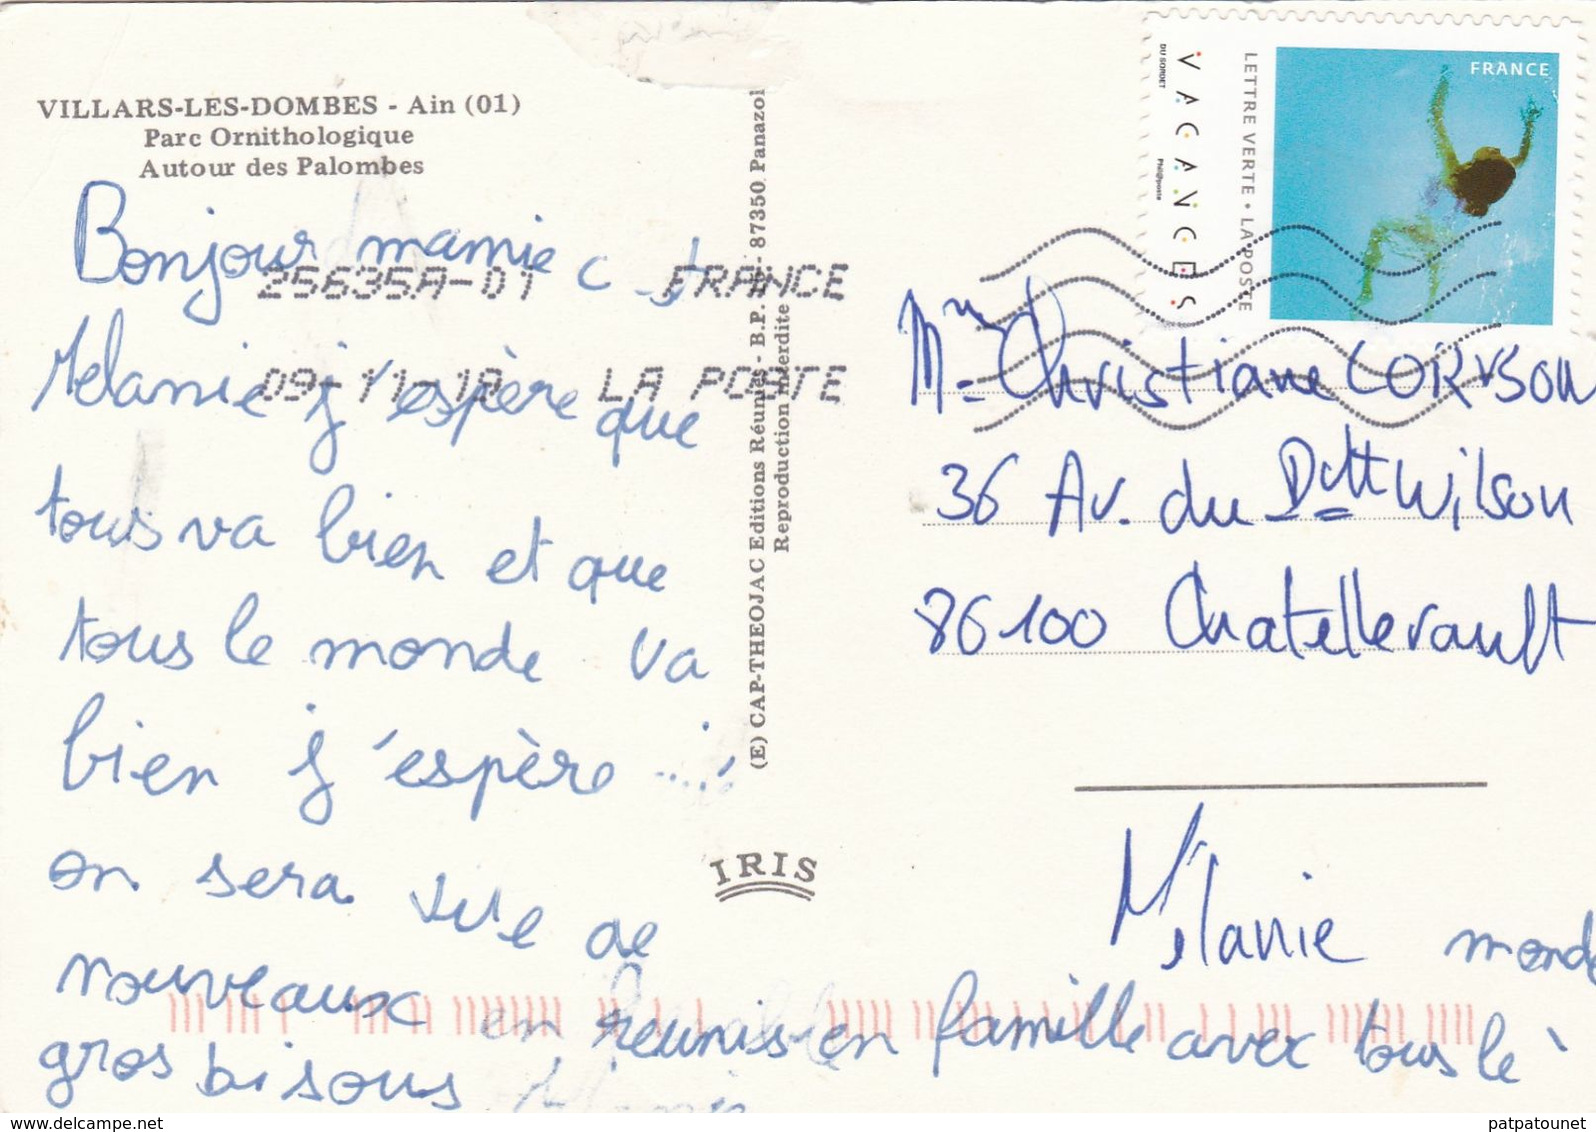 VILLARS-LES-DOMBES - Ain (01)
Parc Ornithologique
Autour des Palombes
Bonjour mamie c st
Mélanie j'espère que
tous va bien et que
tous le monde va
bien j'espère .....
on sera sure de
nouveaux en réunis en famille avec tous le
monde
gros bisous
Mélanie
25635A-01 FRANCE
09-11-18 LA POSTE
(E) CAP-THEOJAC Editions Réunies - B.P. - 87350 Panazol
Reproduction interdite
IRIS
DU SORDET
VACANCES
Phil@poste
LETTRE VERTE • LA POSTE
FRANCE
Mme Christiane CORVSON
36 Av. du Dtt Wilson
86100 Chatellerault
Mélanie
patpatounet